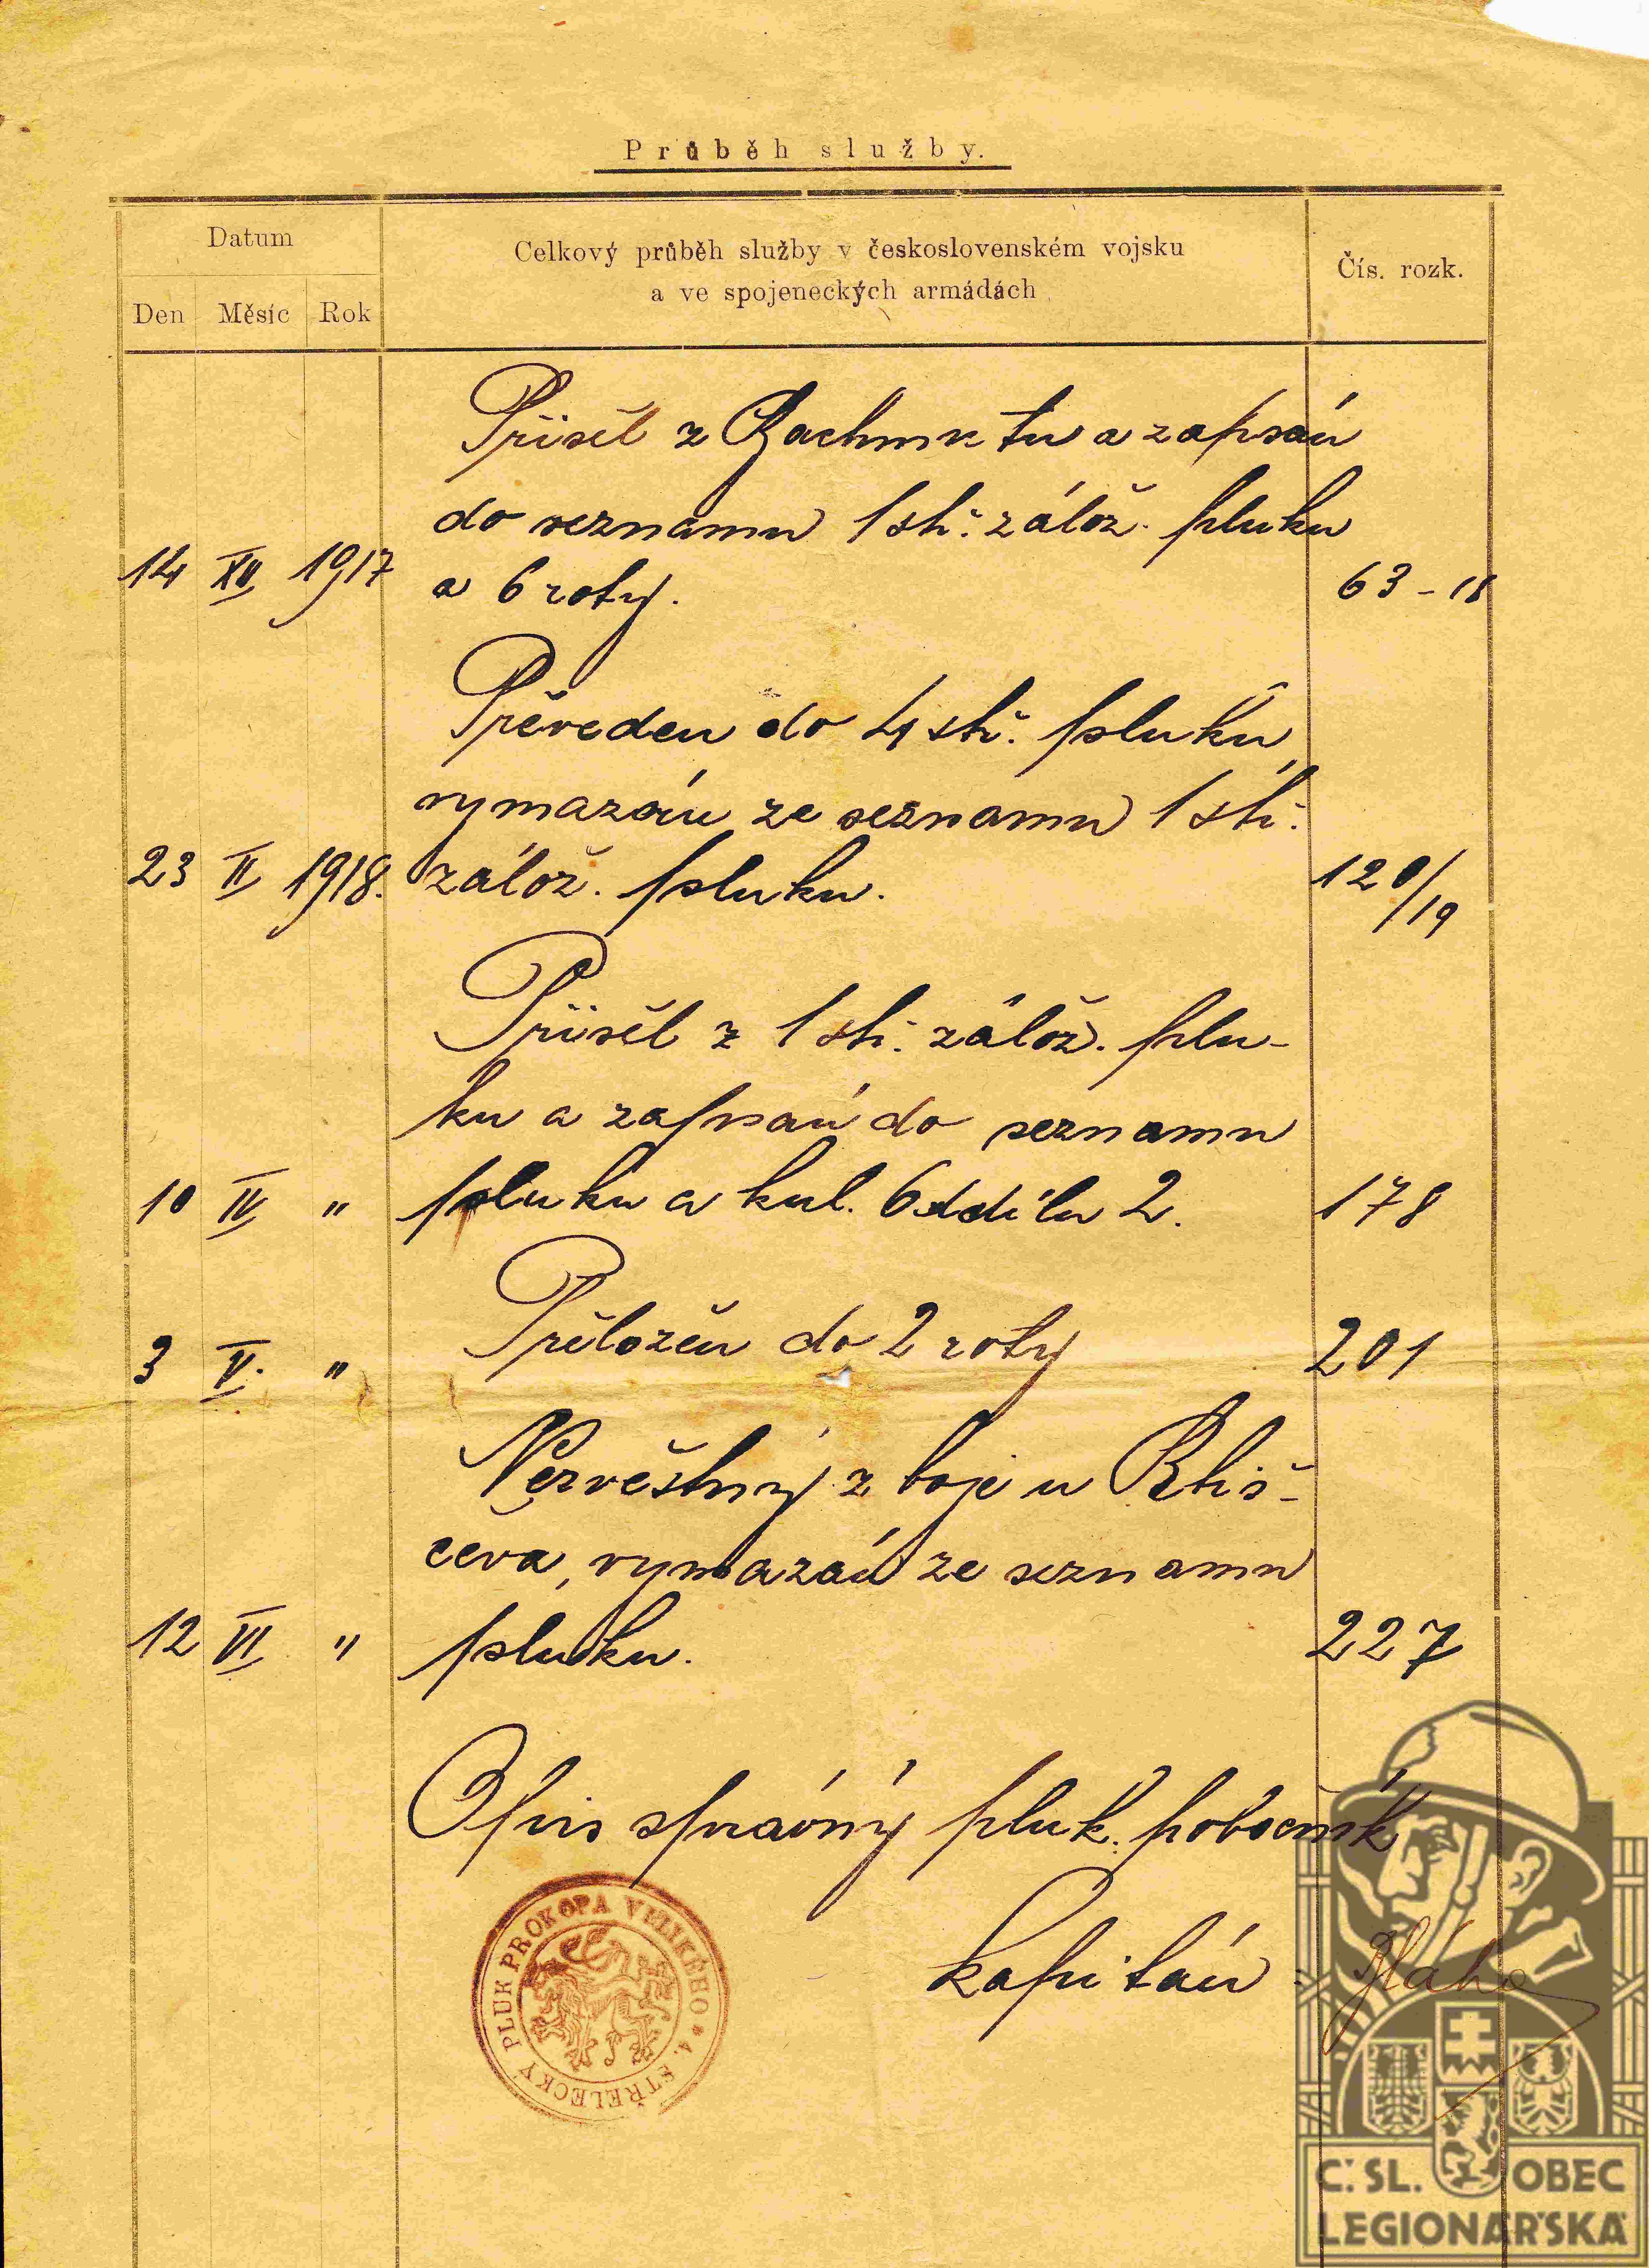 Průběh služby.
Datum
Den Měsíc Rok
Celkový průběh služby v československém vojsku
a ve spojeneckých armádách
Čís. rozk.
Přišel z Bachmutu a zapsán
do seznamu 1 stř. zálož. pluku
14 XII 1917 a 6 roty. 63-18
Převeden do 4 stř. pluku,
vymazán ze seznamu 1 stř.
23 II 1918. zálož. pluku. 120/19
Přišel z 1 stř. zálož. plu-
ku a zapsán do seznamu
10 IV " pluku a kul. Oddílu 2. 178
3 V. " Přeložen do 2 roty 201
Nezvěstný z boje u Rtiš-
čeva, vymazán ze seznamu
12 VI " pluku. 227
Opis správný pluk. pobočník
kapitán Bláha
4. STŘELECKÝ PLUK PROKOPA VELIKÉHO *
Č. SL. OBEC
LEGIONÁŘSKÁ